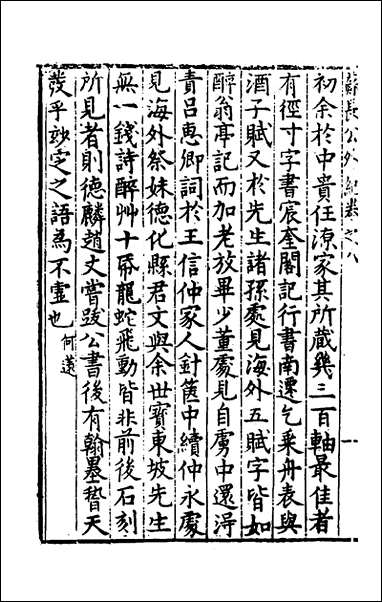 蘇長公外紀卷之八
初余於中貴任源家其所藏幾三百軸最佳者
有徑寸字書宸奎閣記行書南遷乞乘舟表與
酒子賦又於先生諸孫處見海外五賦字皆如
醉翁亭記而加老放畢少董處見自虜中還得
責呂惠卿詞於王信仲家人針篋中續仲永處
見海外祭妹德化縣君文與余世寶東坡先生
無一錢詩醉艸十紙龍蛇飛動皆非前後石刻
所見者則德麟趙丈嘗跋公書後有翰墨稽天
發乎妙定之語為不虛也 何薳